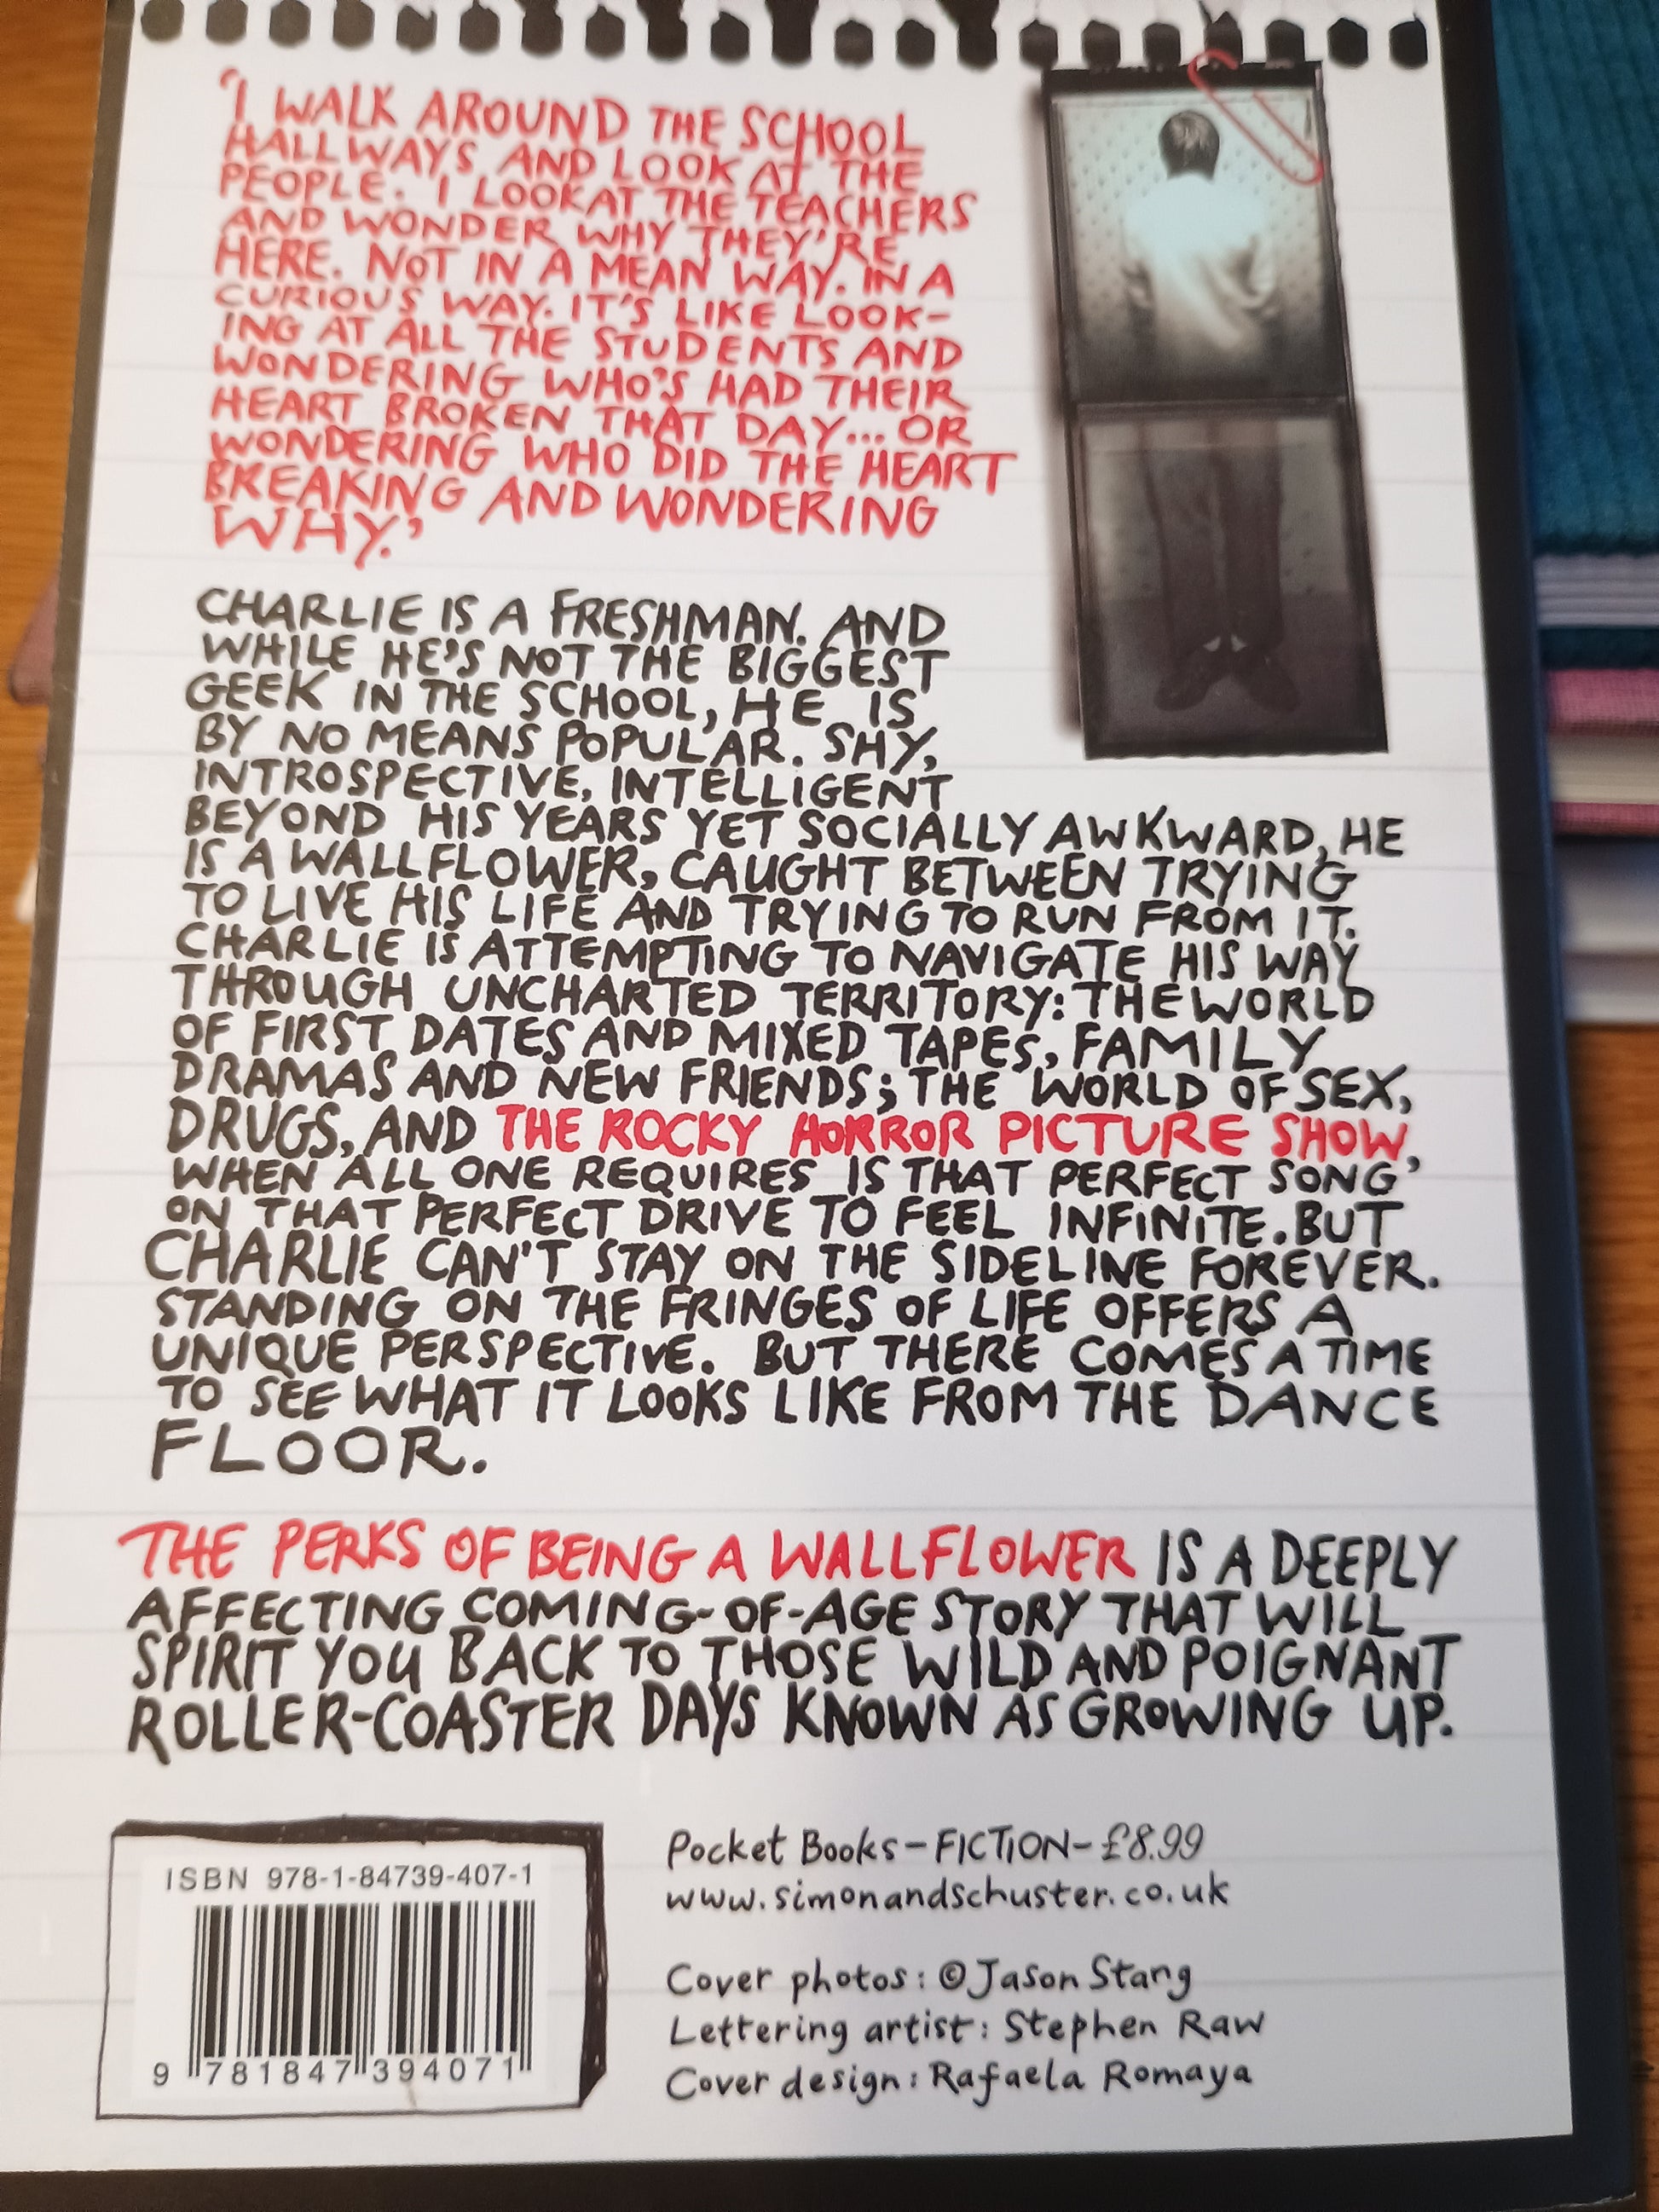 'I WALK AROUND THE SCHOOL
HALLWAYS AND LOOK AT THE
PEOPLE. I LOOK AT THE TEACHERS
AND WONDER WHY THEY'RE
HERE. NOT IN A MEAN WAY. IN A
CURIOUS WAY. IT'S LIKE LOOK-
ING AT ALL THE STUDENTS AND
WONDERING WHO'S HAD THEIR
HEART BROKEN THAT DAY... OR
WONDERING WHO DID THE HEART
BREAKING AND WONDERING
WHY.'
CHARLIE IS A FRESHMAN. AND
WHILE HE'S NOT THE BIGGEST
GEEK IN THE SCHOOL, HE IS
BY NO MEANS POPULAR. SHY,
INTROSPECTIVE, INTELLIGENT
BEYOND HIS YEARS YET SOCIALLY AWKWARD, HE
IS A WALLFLOWER, CAUGHT BETWEEN TRYING
TO LIVE HIS LIFE AND TRYING TO RUN FROM IT.
CHARLIE IS ATTEMPTING TO NAVIGATE HIS WAY
THROUGH UNCHARTED TERRITORY: THE WORLD
OF FIRST DATES AND MIXED TAPES, FAMILY
DRAMAS AND NEW FRIENDS; THE WORLD OF SEX,
DRUGS, AND THE ROCKY HORROR PICTURE SHOW,
WHEN ALL ONE REQUIRES IS THAT PERFECT SONG
ON THAT PERFECT DRIVE TO FEEL INFINITE. BUT
CHARLIE CAN'T STAY ON THE SIDELINE FOREVER.
STANDING ON THE FRINGES OF LIFE OFFERS A
UNIQUE PERSPECTIVE. BUT THERE COMES A TIME
TO SEE WHAT IT LOOKS LIKE FROM THE DANCE
FLOOR.
THE PERKS OF BEING A WALLFLOWER IS A DEEPLY
AFFECTING COMING-OF-AGE STORY THAT WILL
SPIRIT YOU BACK TO THOSE WILD AND POIGNANT
ROLLER-COASTER DAYS KNOWN AS GROWING UP.
ISBN 978-1-84739-407-1
9 781847 394071
Pocket Books – FICTION – £8.99
www.simonandschuster.co.uk
Cover photos: © Jason Stang
Lettering artist: Stephen Raw
Cover design: Rafaela Romaya